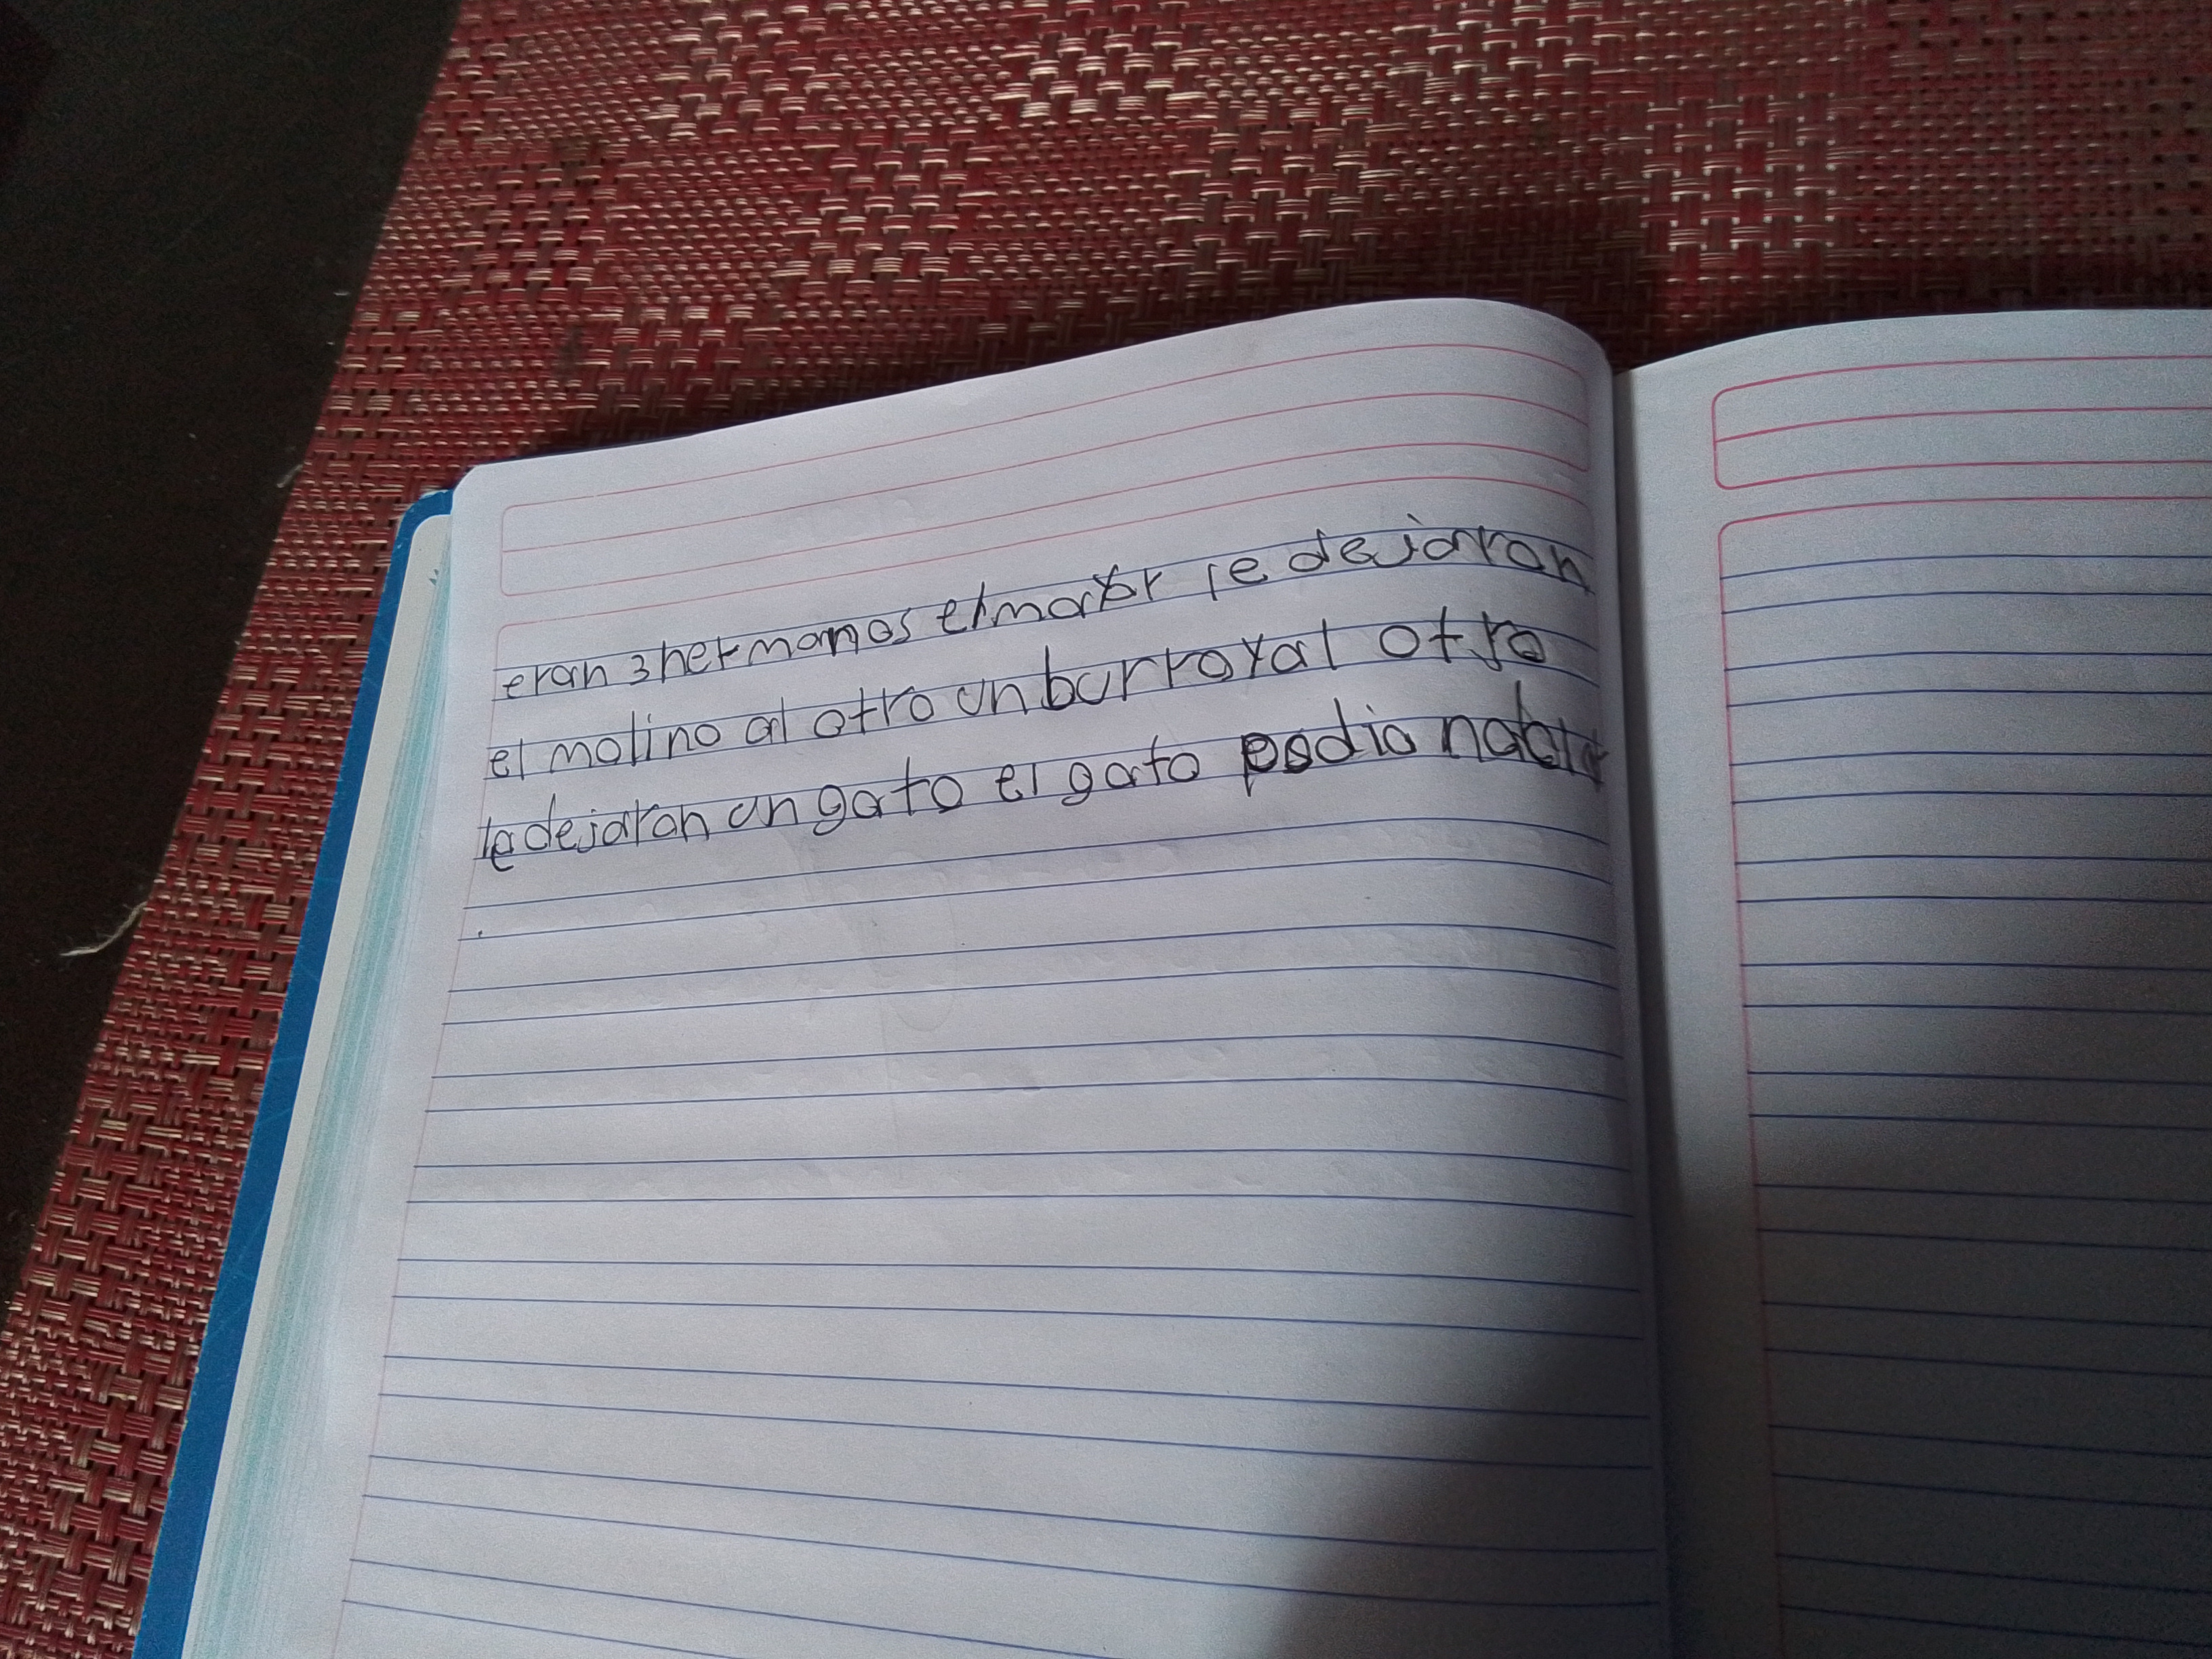 eran 3 hermamos el mayor le dejaron
el molino al otro un burro yal otro
le dejaron un gato el gato podia hablar